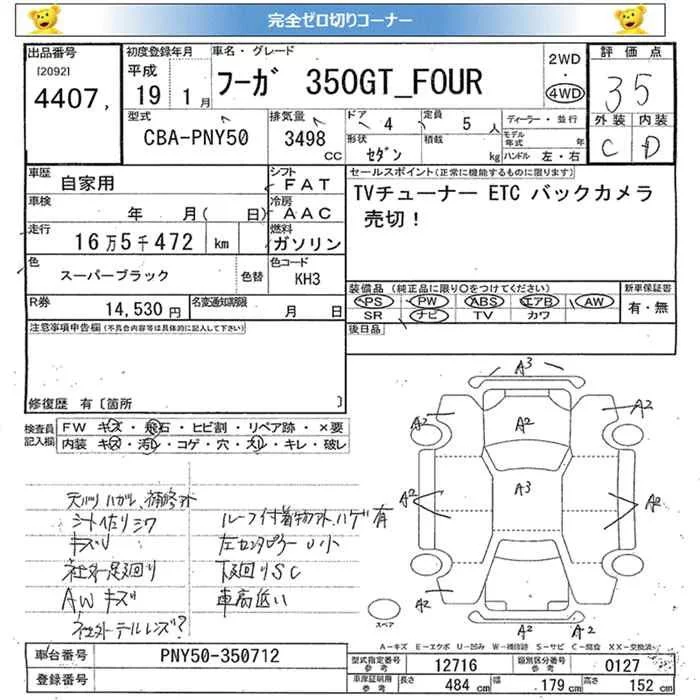 完全ゼロ切りコーナー
出品番号
[2092]
4407,
初度登録年月
平成
19 1月
車名・グレード
フーガ 350GT_FOUR
2WD
・
4WD
評価点
35
外装 内装
C D
型式
CBA-PNY50
排気量
3498
cc
ドア
4
定員
5 人
形状
セダン
積載
kg
ディーラー・並行
モデル年式 年
ハンドル 左・右
車歴
自家用
シフト
FAT
車検
年 月( 日)
冷房
AAC
走行
16万5千472 km
燃料
ガソリン
色
スーパーブラック
色替
色コード
KH3
R券
14,530 円
名変通知期限
月 日
セールスポイント(正常に機能するものに限ります)
TVチューナー ETC バックカメラ
売切!
装備品 (純正品に限り○をつけてください)
PS PW ABS エアB AW
SR ナビ TV カワ
新車保証書
有・無
後日品
注意事項申告欄(不具合内容等は具体的に記入して下さい)
修復歴 有〔箇所 〕
検査員
記入欄
FW キズ・飛石・ヒビ割・リペア跡・×要
内装 キズ・汚レ・コゲ・穴・スレ・キレ・破レ
天バリハガレ、補修跡
シート佐リシワ
キズU
社外足廻り
AWキズ
社外テールレンズ?
ルーフ付着物跡、ハゲ有
左センタピラーU小
下廻りSC
車高低い
A3
A2
A2
A2
A2
A3
A2
A2
A2
A2
A2
スペア
A-キズ E-エクボ U-凹み W-補修跡 S-サビ C-腐食 XX-交換済
車台番号
PNY50-350712
登録番号
型式指定番号
参考
12716
類別区分番号
参考
0127
車庫証明用
参考
長さ
484 cm
幅
179 cm
高さ
152 cm